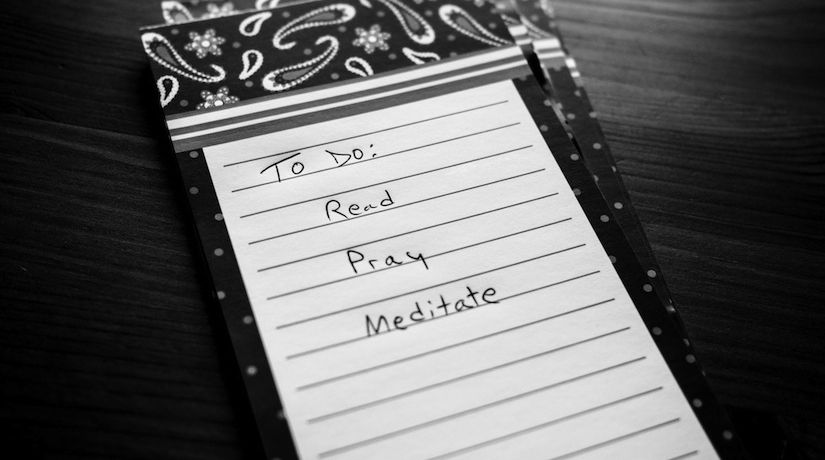 To Do:
Read
Pray
Meditate